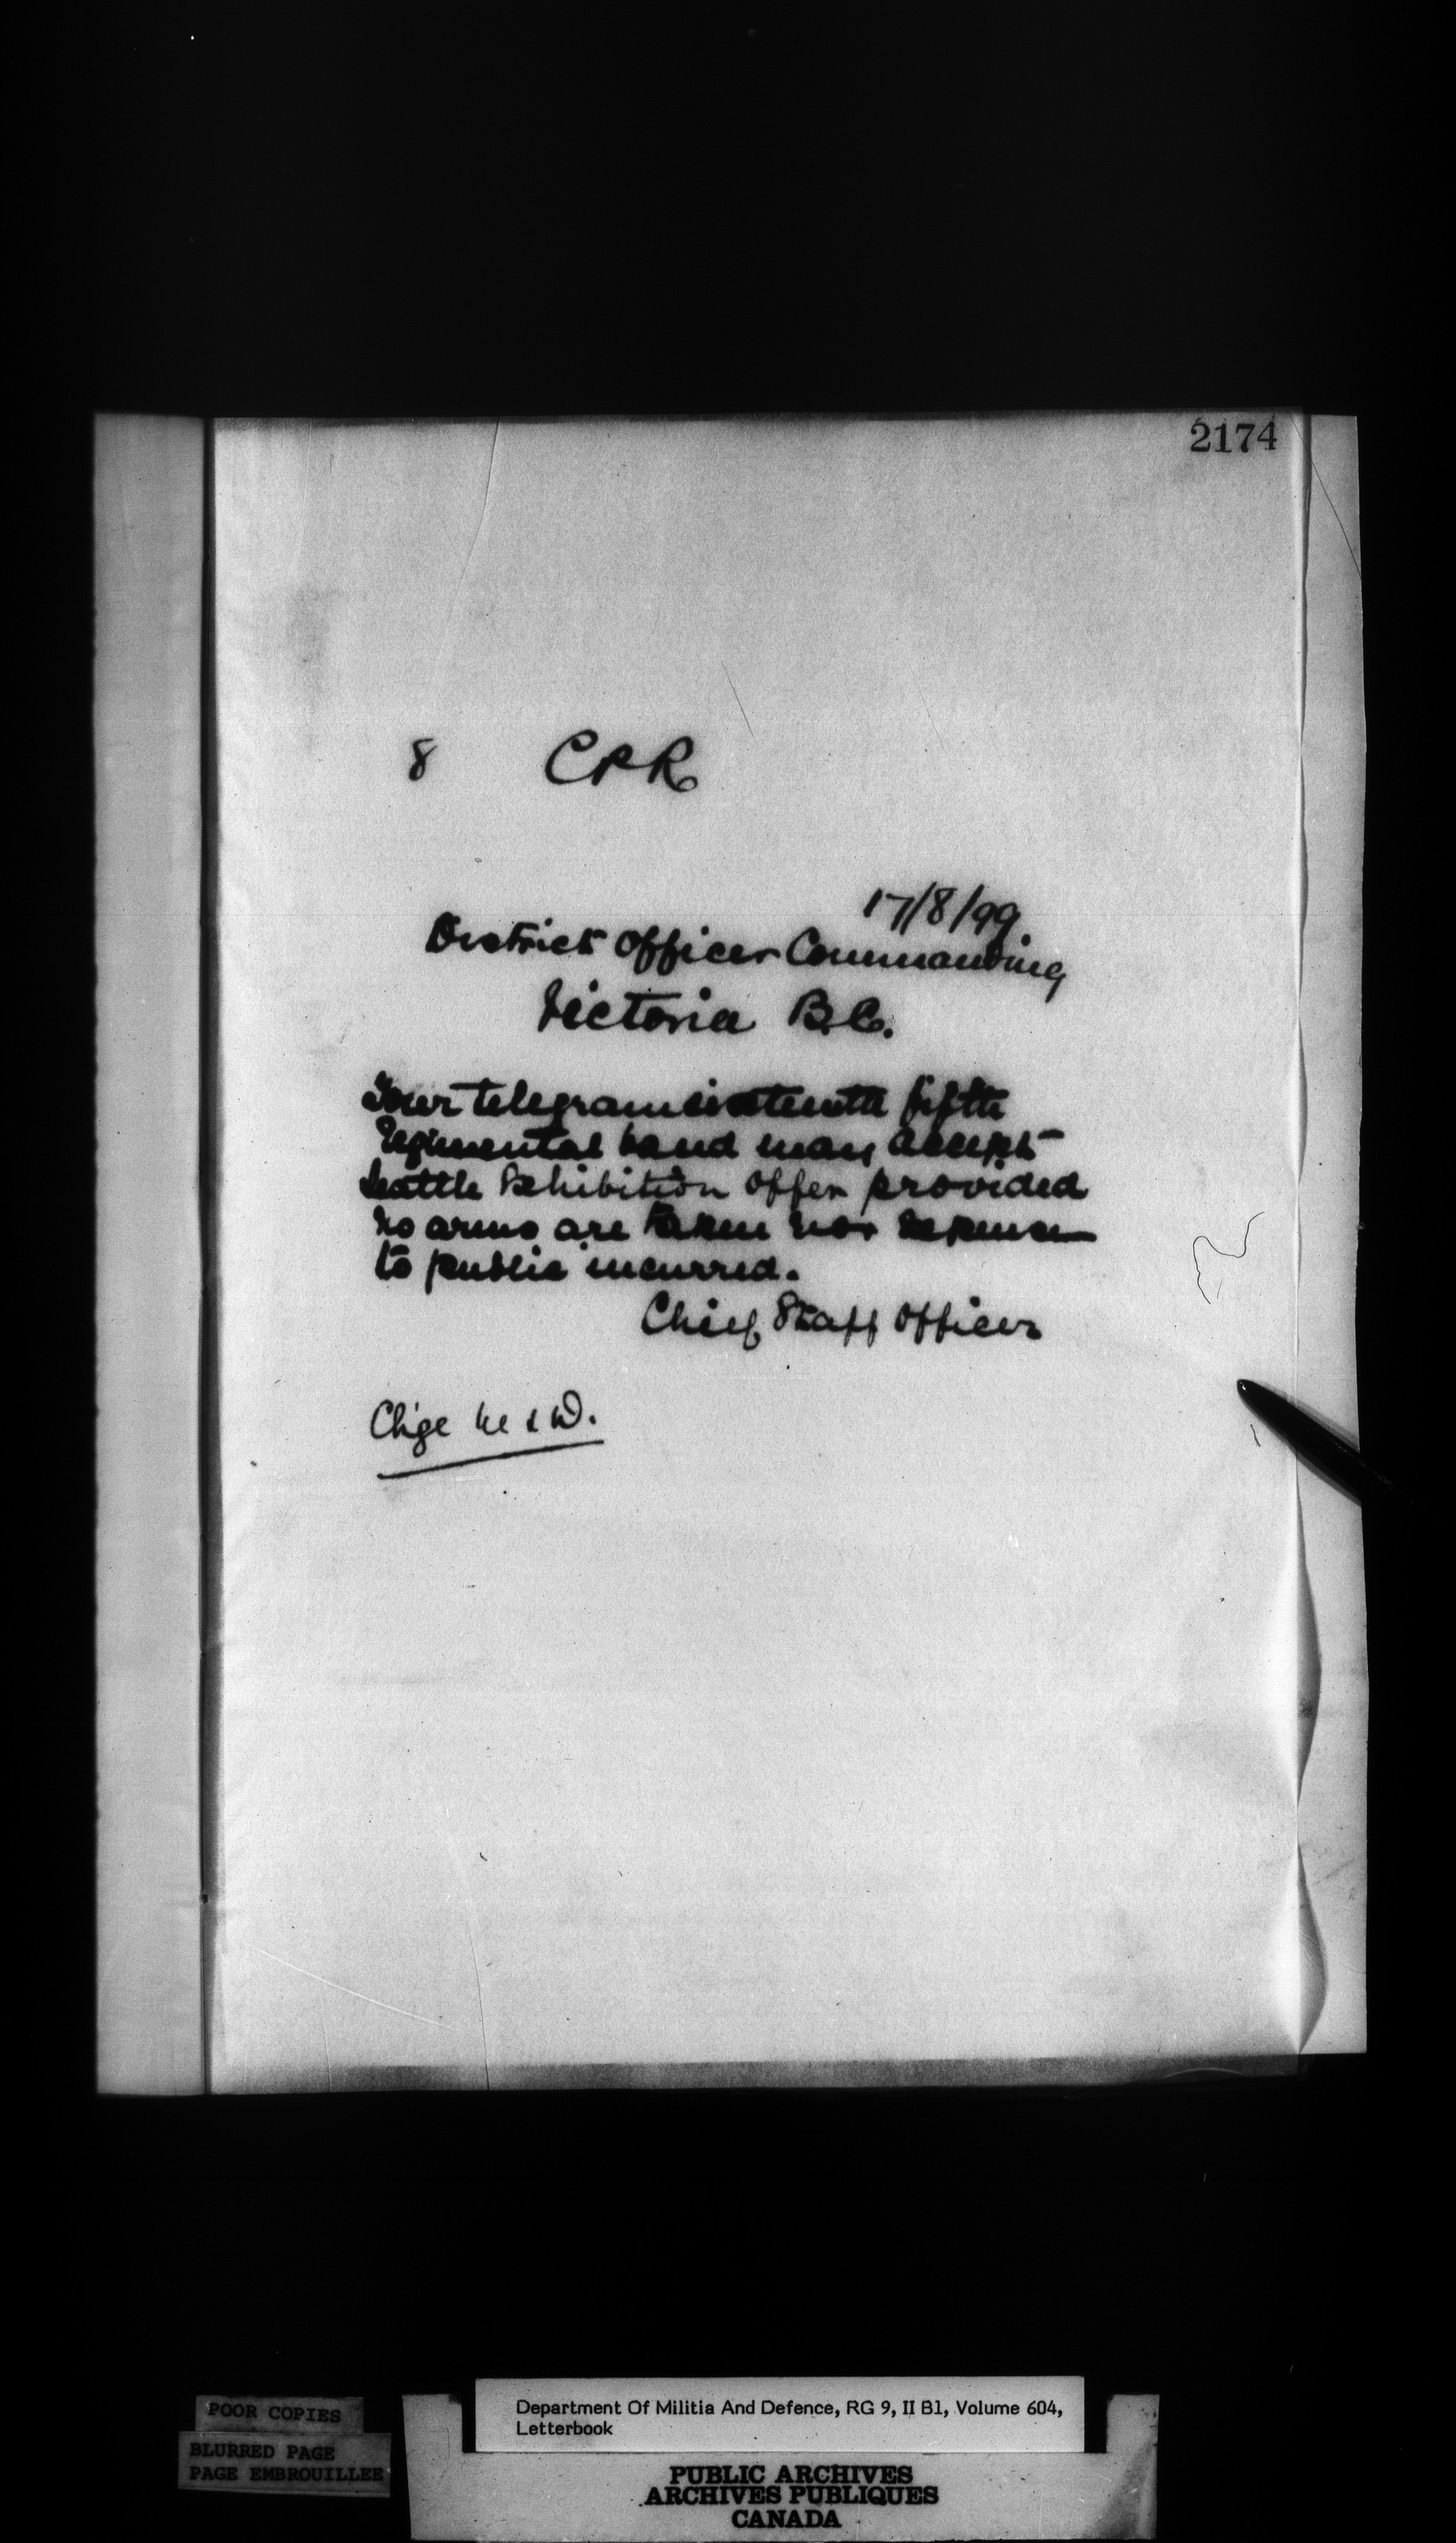 2174
8 CPR
17/8/99.
District Officer Commanding
Victoria B.C.
Your telegram sixteenth fifth
Regimental band may accept
Seattle Exhibition offer provided
no arms are taken nor expense
to public incurred.
Chief Staff Officer
Chge M & D.
POOR COPIES
BLURRED PAGE
PAGE EMBROUILLEE
Department Of Militia And Defence, RG 9, II B1, Volume 604,
Letterbook
PUBLIC ARCHIVES
ARCHIVES PUBLIQUES
CANADA